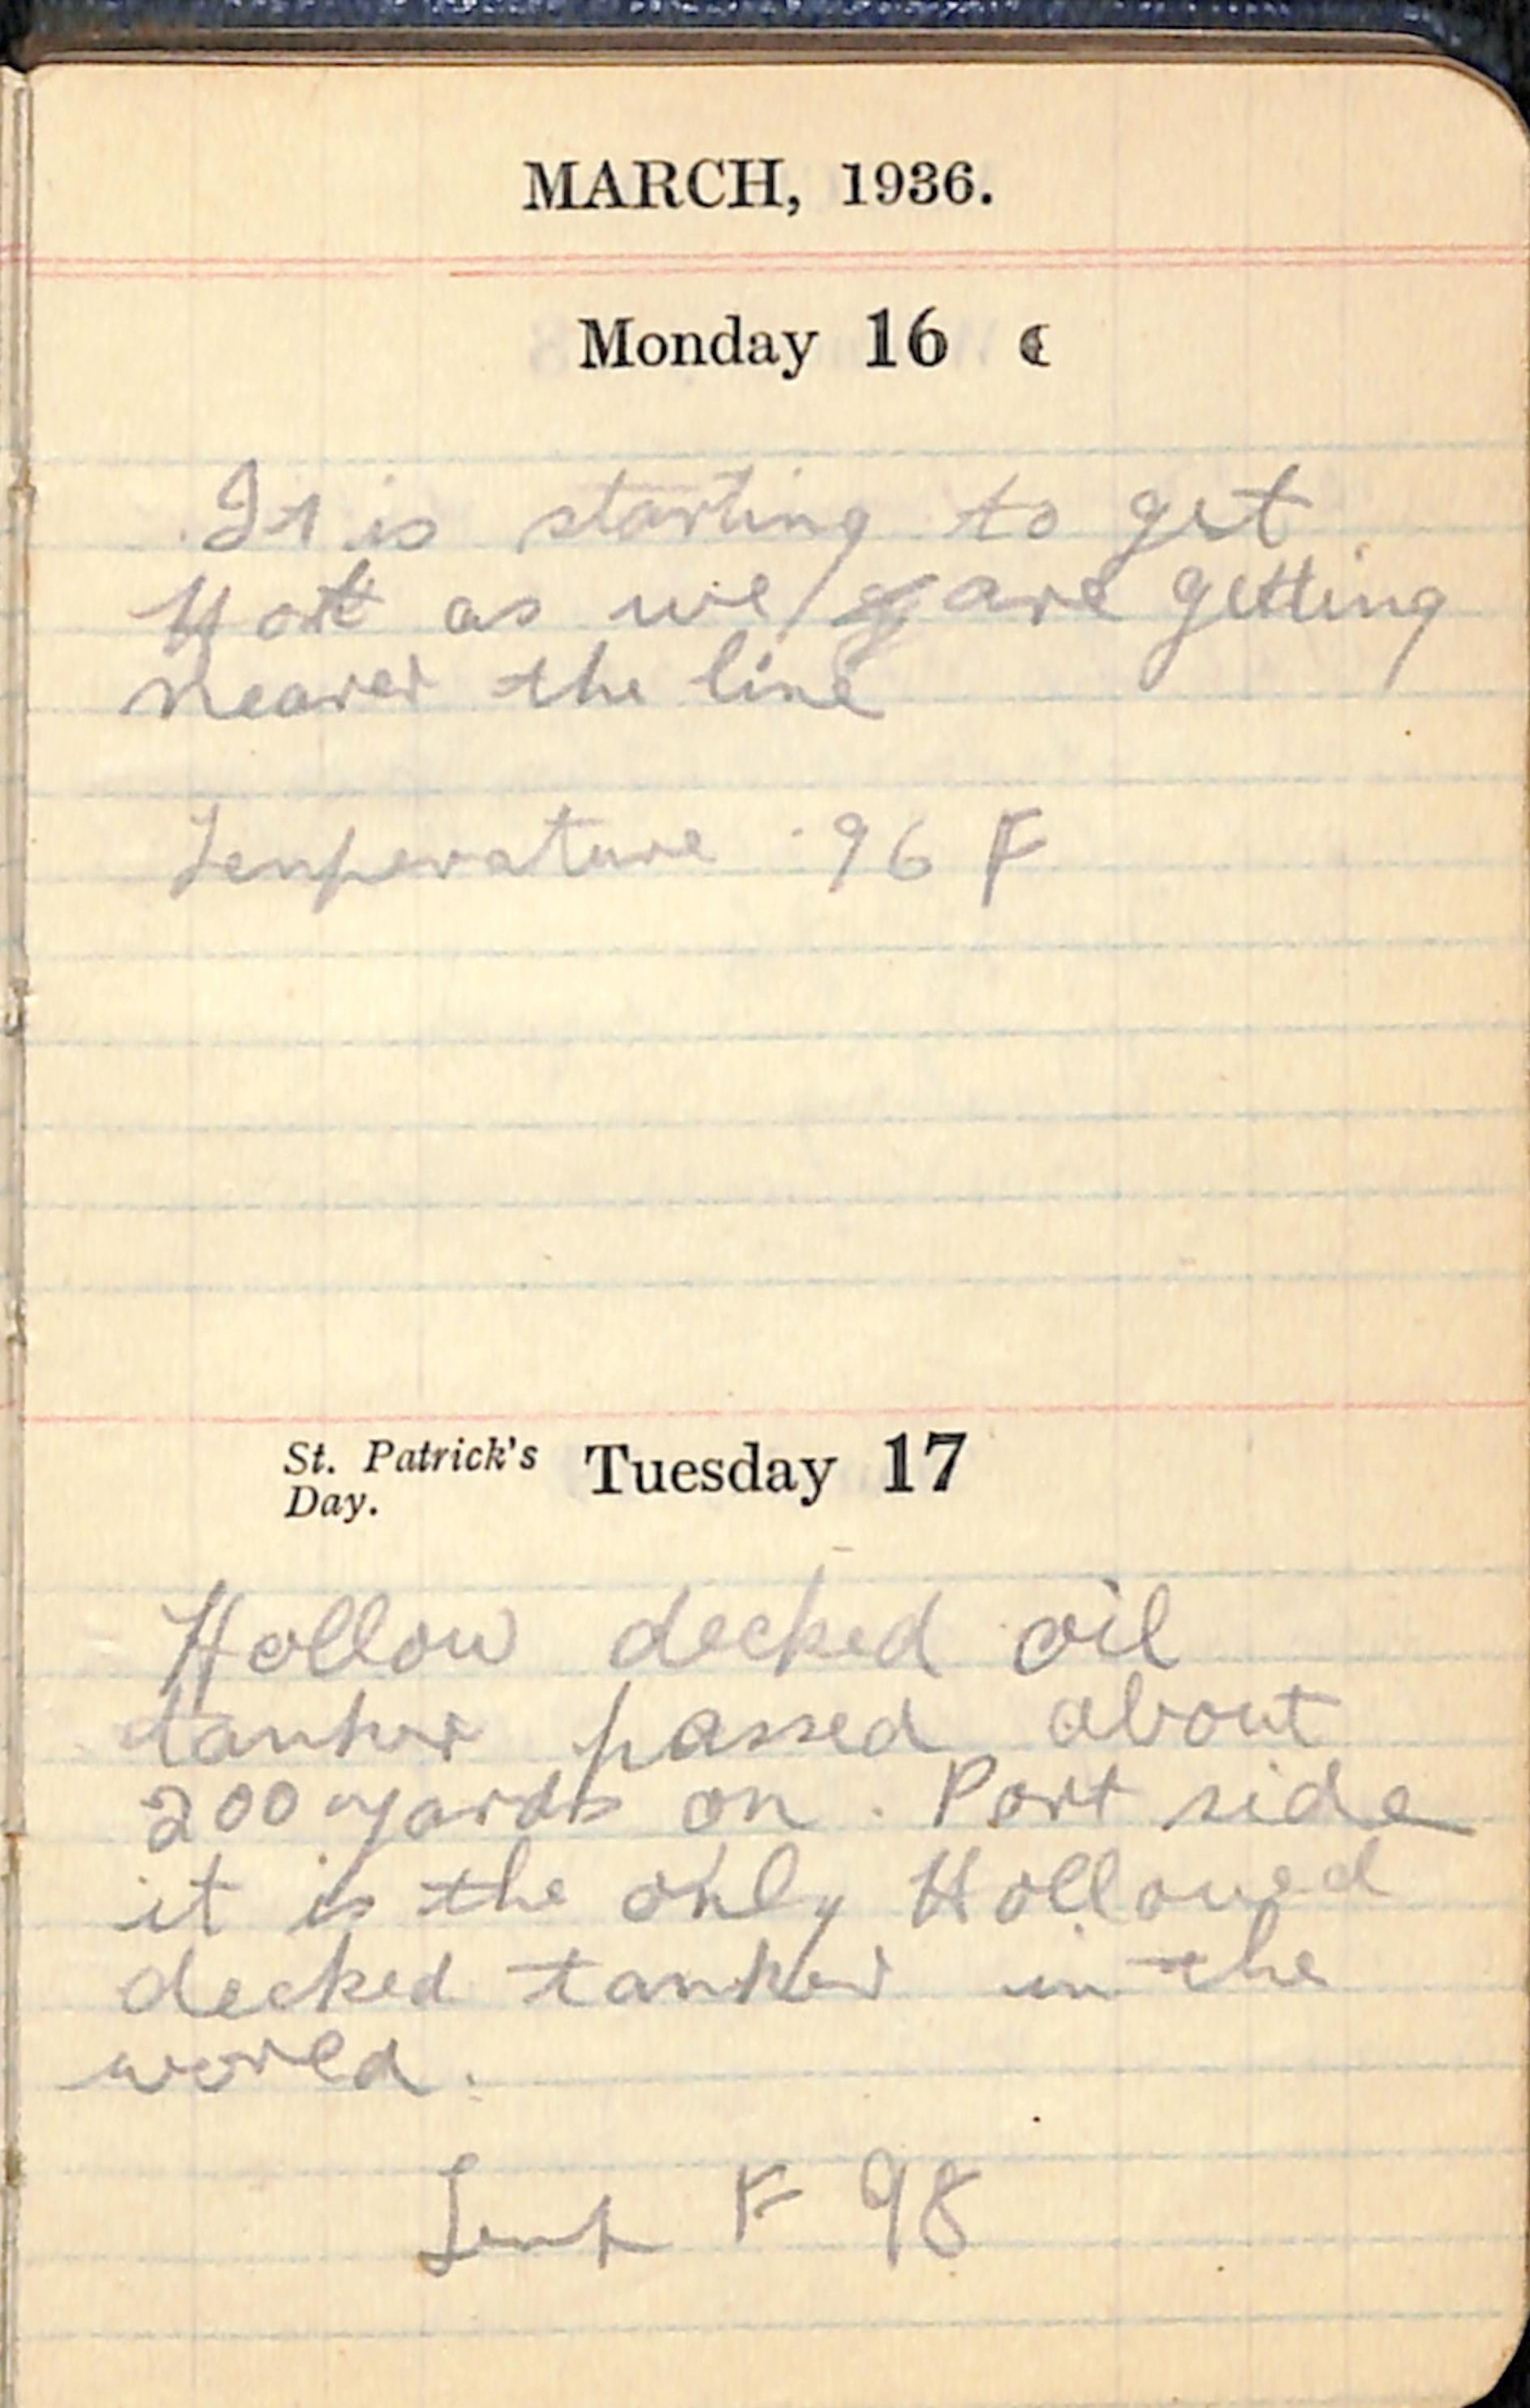 MARCH, 1936.
Monday 16
It is starting to get
Hot as we are getting
nearer the line
Temperature 96 F
St. Patrick's Day. Tuesday 17
Hollow decked oil
tanker passed about
200 yards on Port side
it is the only Hollowed
decked tanker in the
world.
Temp F 98